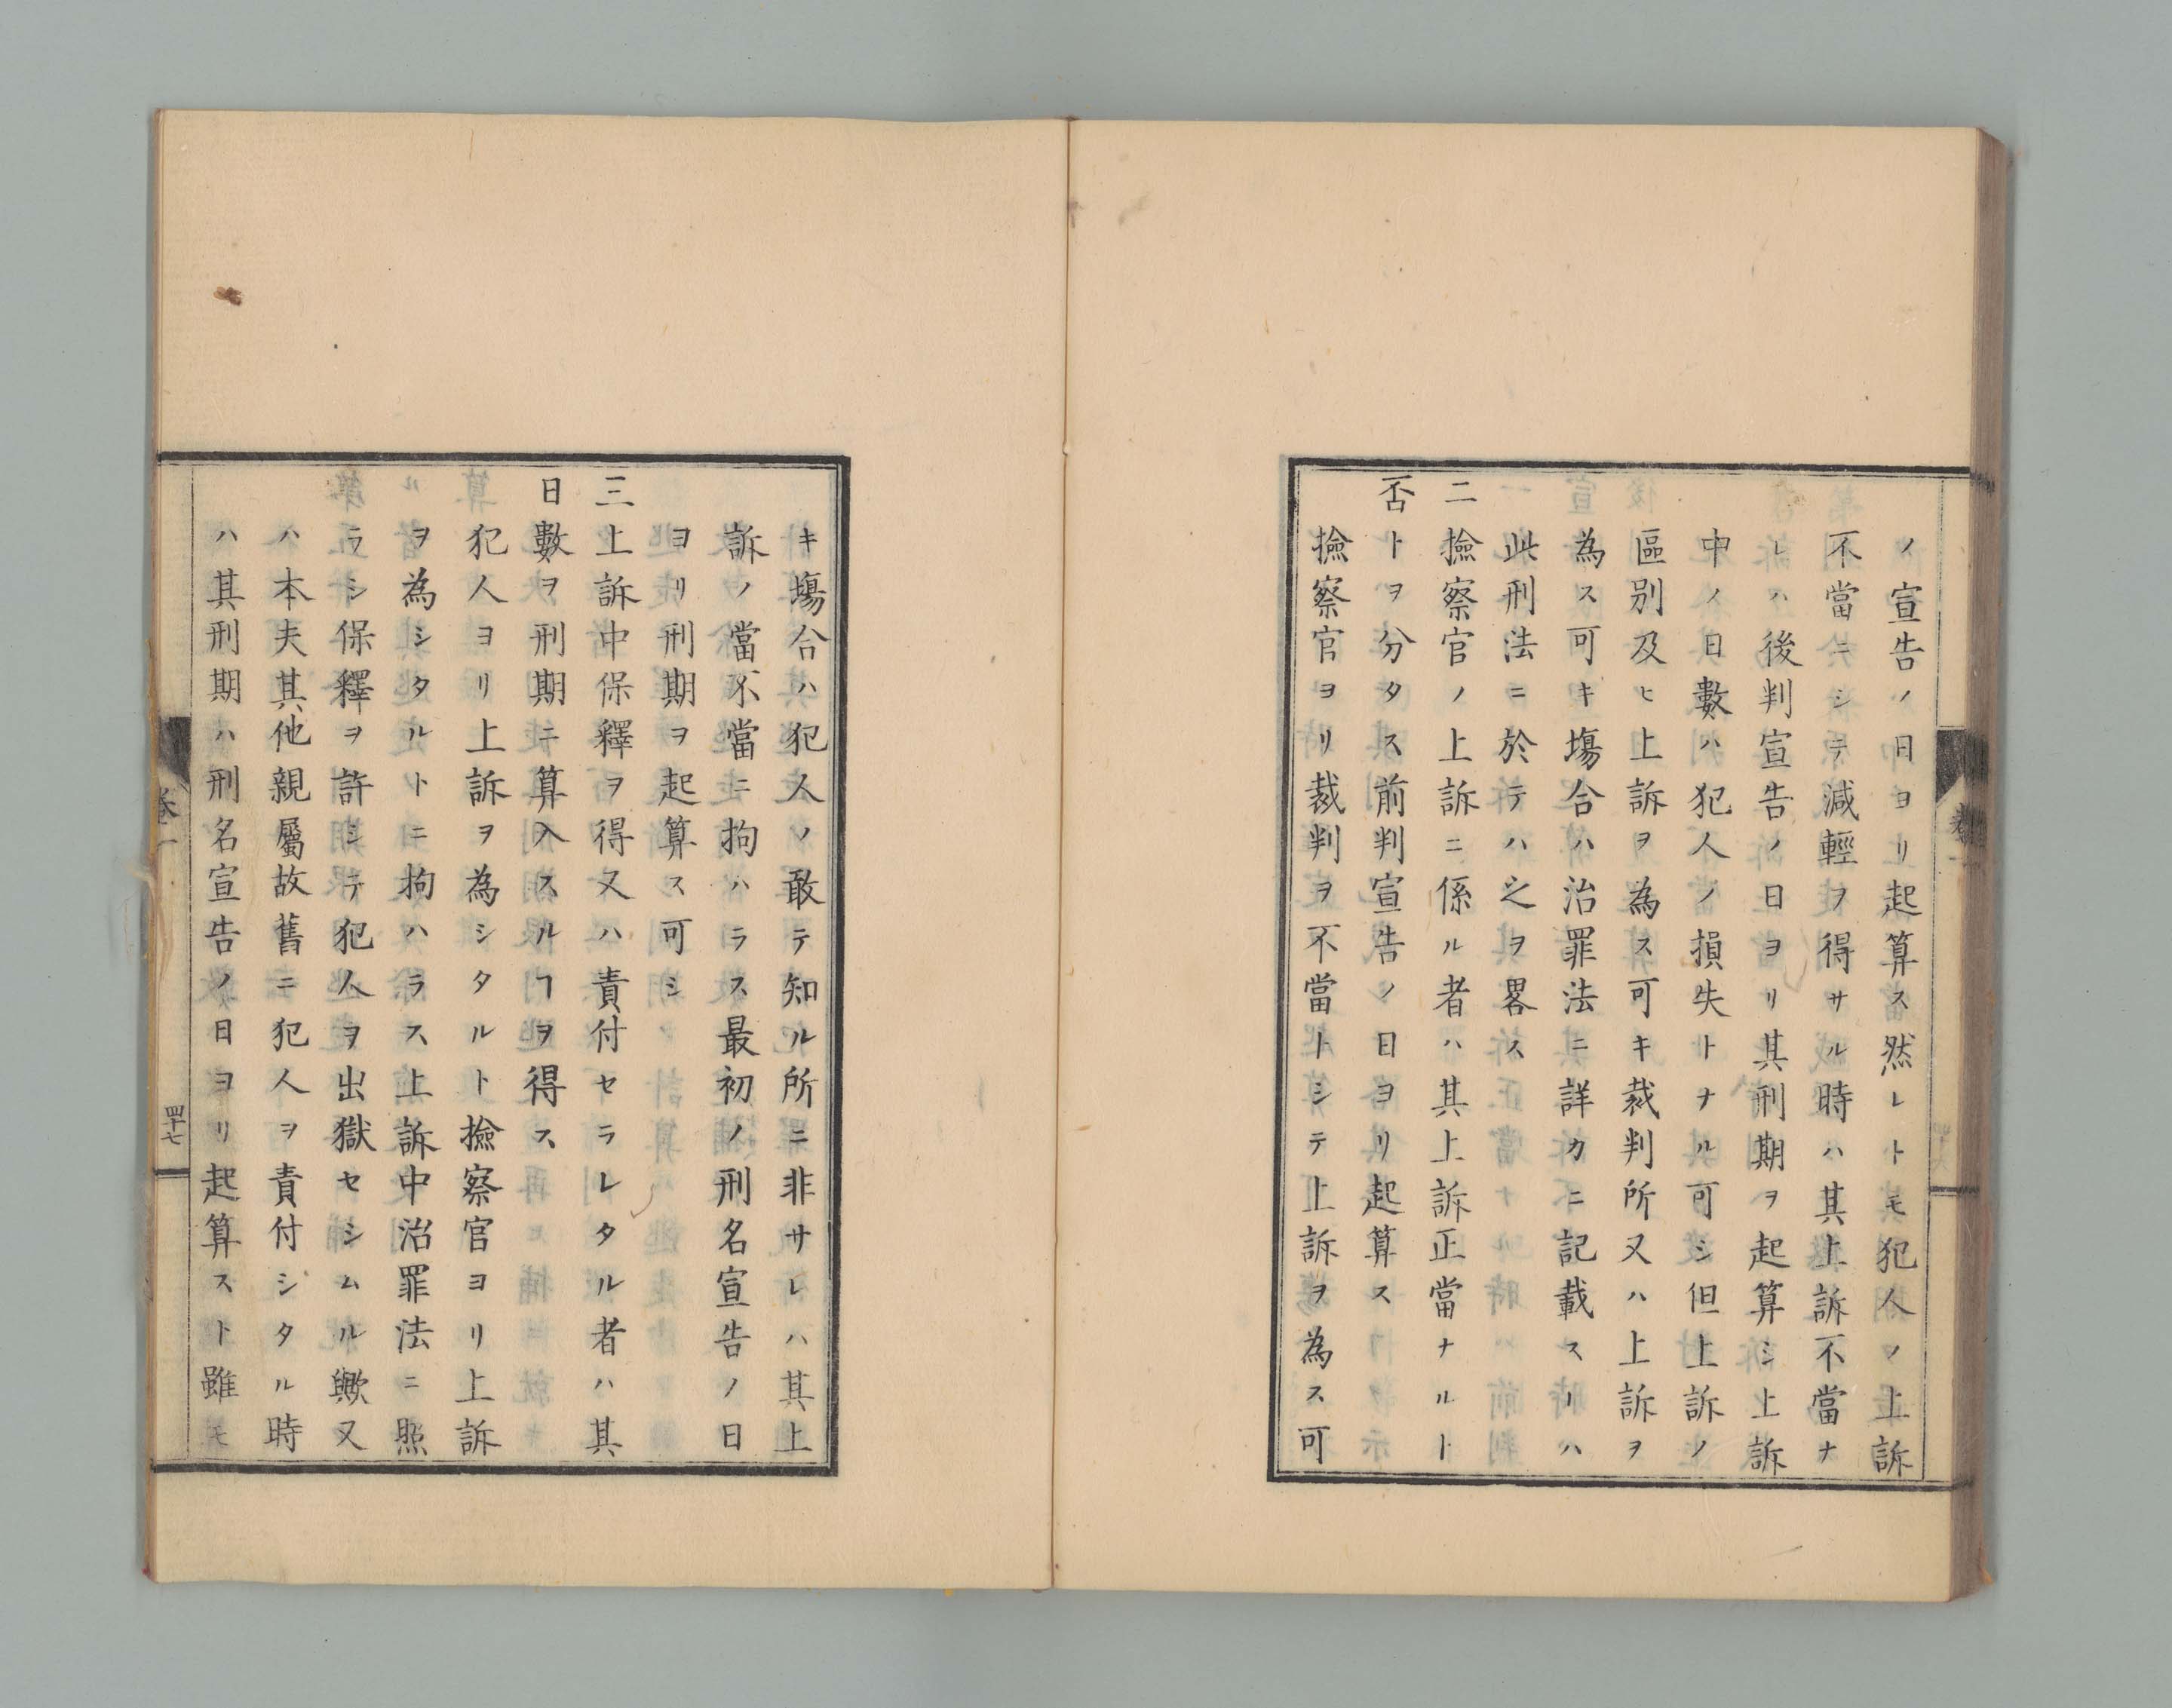 ノ宣告ノ日ヨリ起算ス然レトモ犯人ノ上訴
不當ニシテ減輕ヲ得サル時ハ其上訴不當ナ
レハ後判宣告ノ日ヨリ其刑期ヲ起算シ上訴
中ノ日數ハ犯人ノ損失トナル可シ但上訴ノ
區別及ヒ上訴ヲ為ス可キ裁判所又ハ上訴ヲ
為ス可キ塲合ハ治罪法ニ詳カニ記載スレハ
此刑法ニ於テハ之ヲ畧ス
二撿察官ノ上訴ニ係ル者ハ其上訴正當ナルト
否トヲ分タス前判宣告ノ日ヨリ起算ス
撿察官ヨリ裁判ヲ不當トシテ上訴ヲ為ス可
キ塲合ハ犯人ノ敢テ知ル所ニ非サレハ其上
訴ノ當不當ニ拘ハラス最初ノ刑名宣告ノ日
ヨリ刑期ヲ起算ス可シ
三上訴中保釋ヲ得又ハ責付セラレタル者ハ其
日數ヲ刑期ニ算入スルヿヲ得ス
犯人ヨリ上訴ヲ為シタルト撿察官ヨリ上訴
ヲ為シタルトニ拘ハラス上訴中治罪法ニ照
ラシ保釋ヲ許シテ犯人ヲ出獄セシムル歟又
ハ本夫其他親屬故舊ニ犯人ヲ責付シタル時
ハ其刑期ハ刑名宣告ノ日ヨリ起算スト雖モ
卷一
四十七